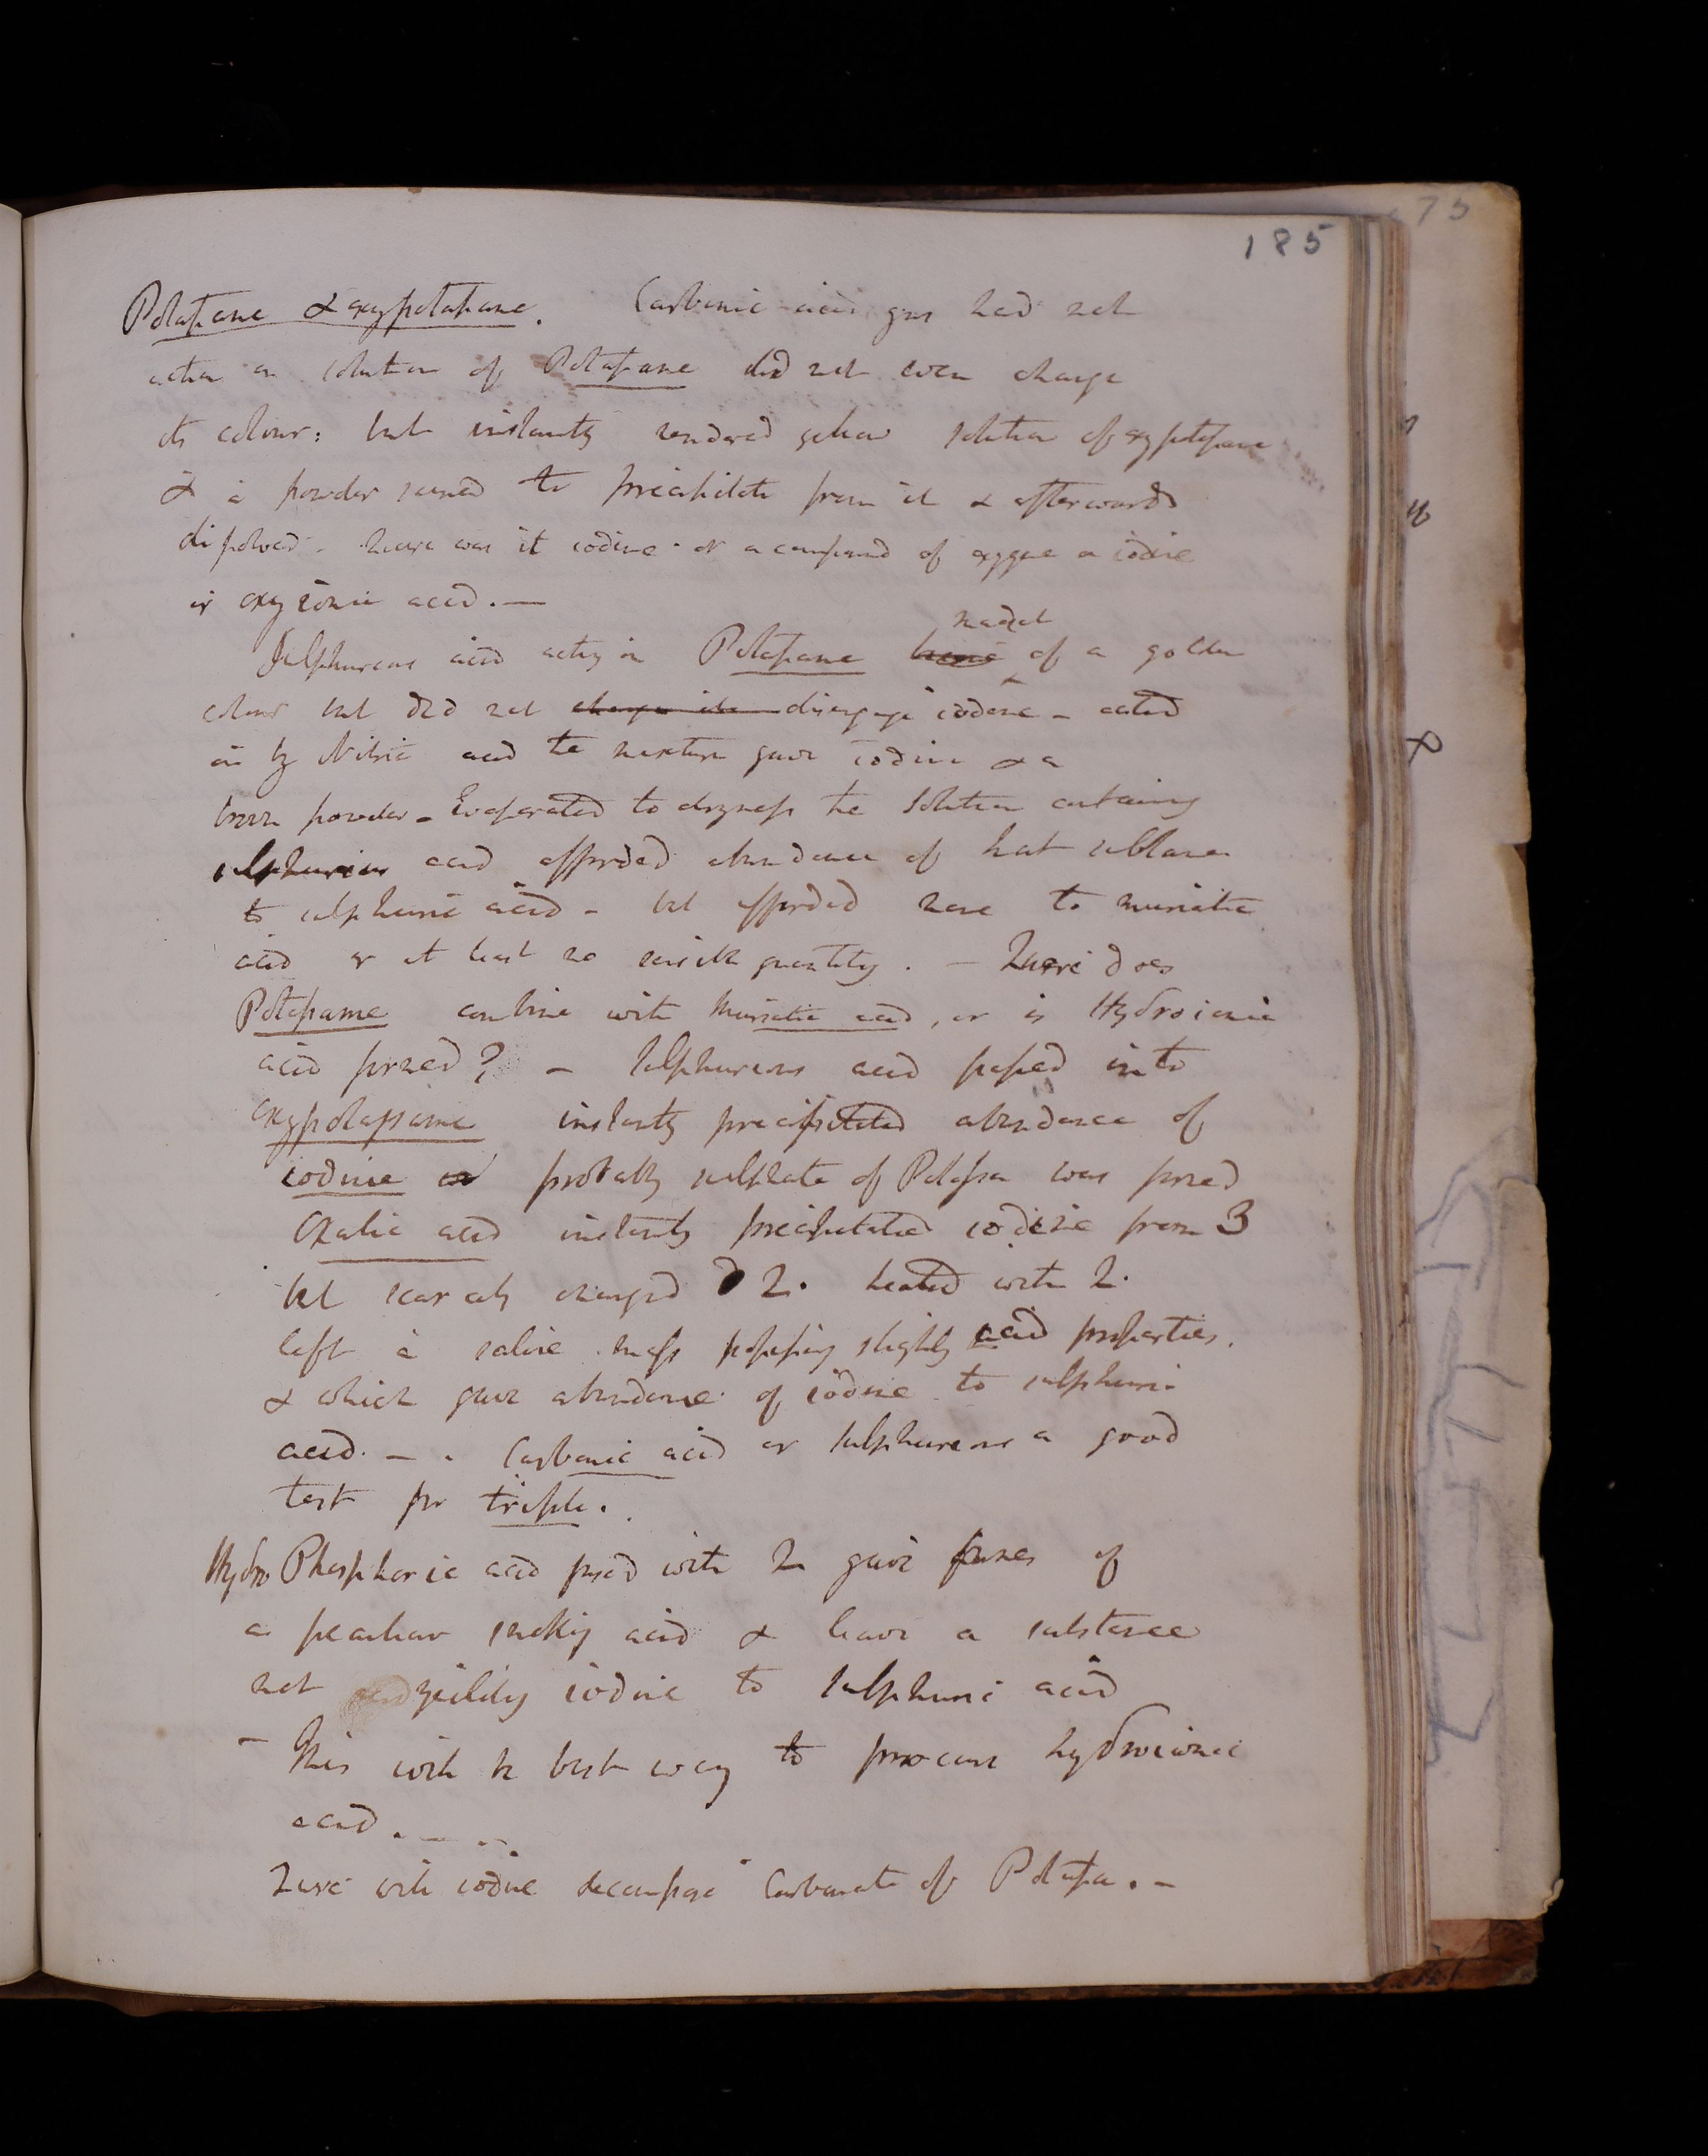 185
Potassane & oxypotassane. Carbonic acid gas had not
action on solution of Potassane did not even change
its colour: but instantly rendered yellow solution of oxypotassane
& a powder seemed to precipitate from it & afterwards
dissolved - Quere was it iodine or a compound of oxygene & iodine
or oxyionic acid. —
Sulphureous acid acting on Potassane made it of a golden
colour but did not change its disengage iodine - acted
on by Nitric acid the mixture gave iodine & a
brown powder - Evaporated to dryness the solution containing
sulphureous acid afforded abundance of that substance
to sulphuric acid - but afforded none to muriatic
acid or at least no sensible quantity. — Quere does
Potassame combine with Muriatic acid, or is Hydroionic
acid formed? — Sulphureous acid passed into
oxypotassame instantly precipitated abundance of
iodine probably sulphate of Potassa was formed
Oxalic acid instantly precipitated iodine from 3
but scarcely changed 2. heated with 2.
left a saline mass possessing slightly acid properties.
& which gave abundance of iodine to sulphuric
acid. — . Carbonic acid or sulphureous a good
test for triple.
Hydro Phosphoric acid fused with 2 gave fumes of
a peculiar smoking acid & leave a substance
not yielding iodine to sulphuric acid
— This will be best way to procure hydroionic
acid. —
Quere will iodine decompose Carbonate of Potassa. —